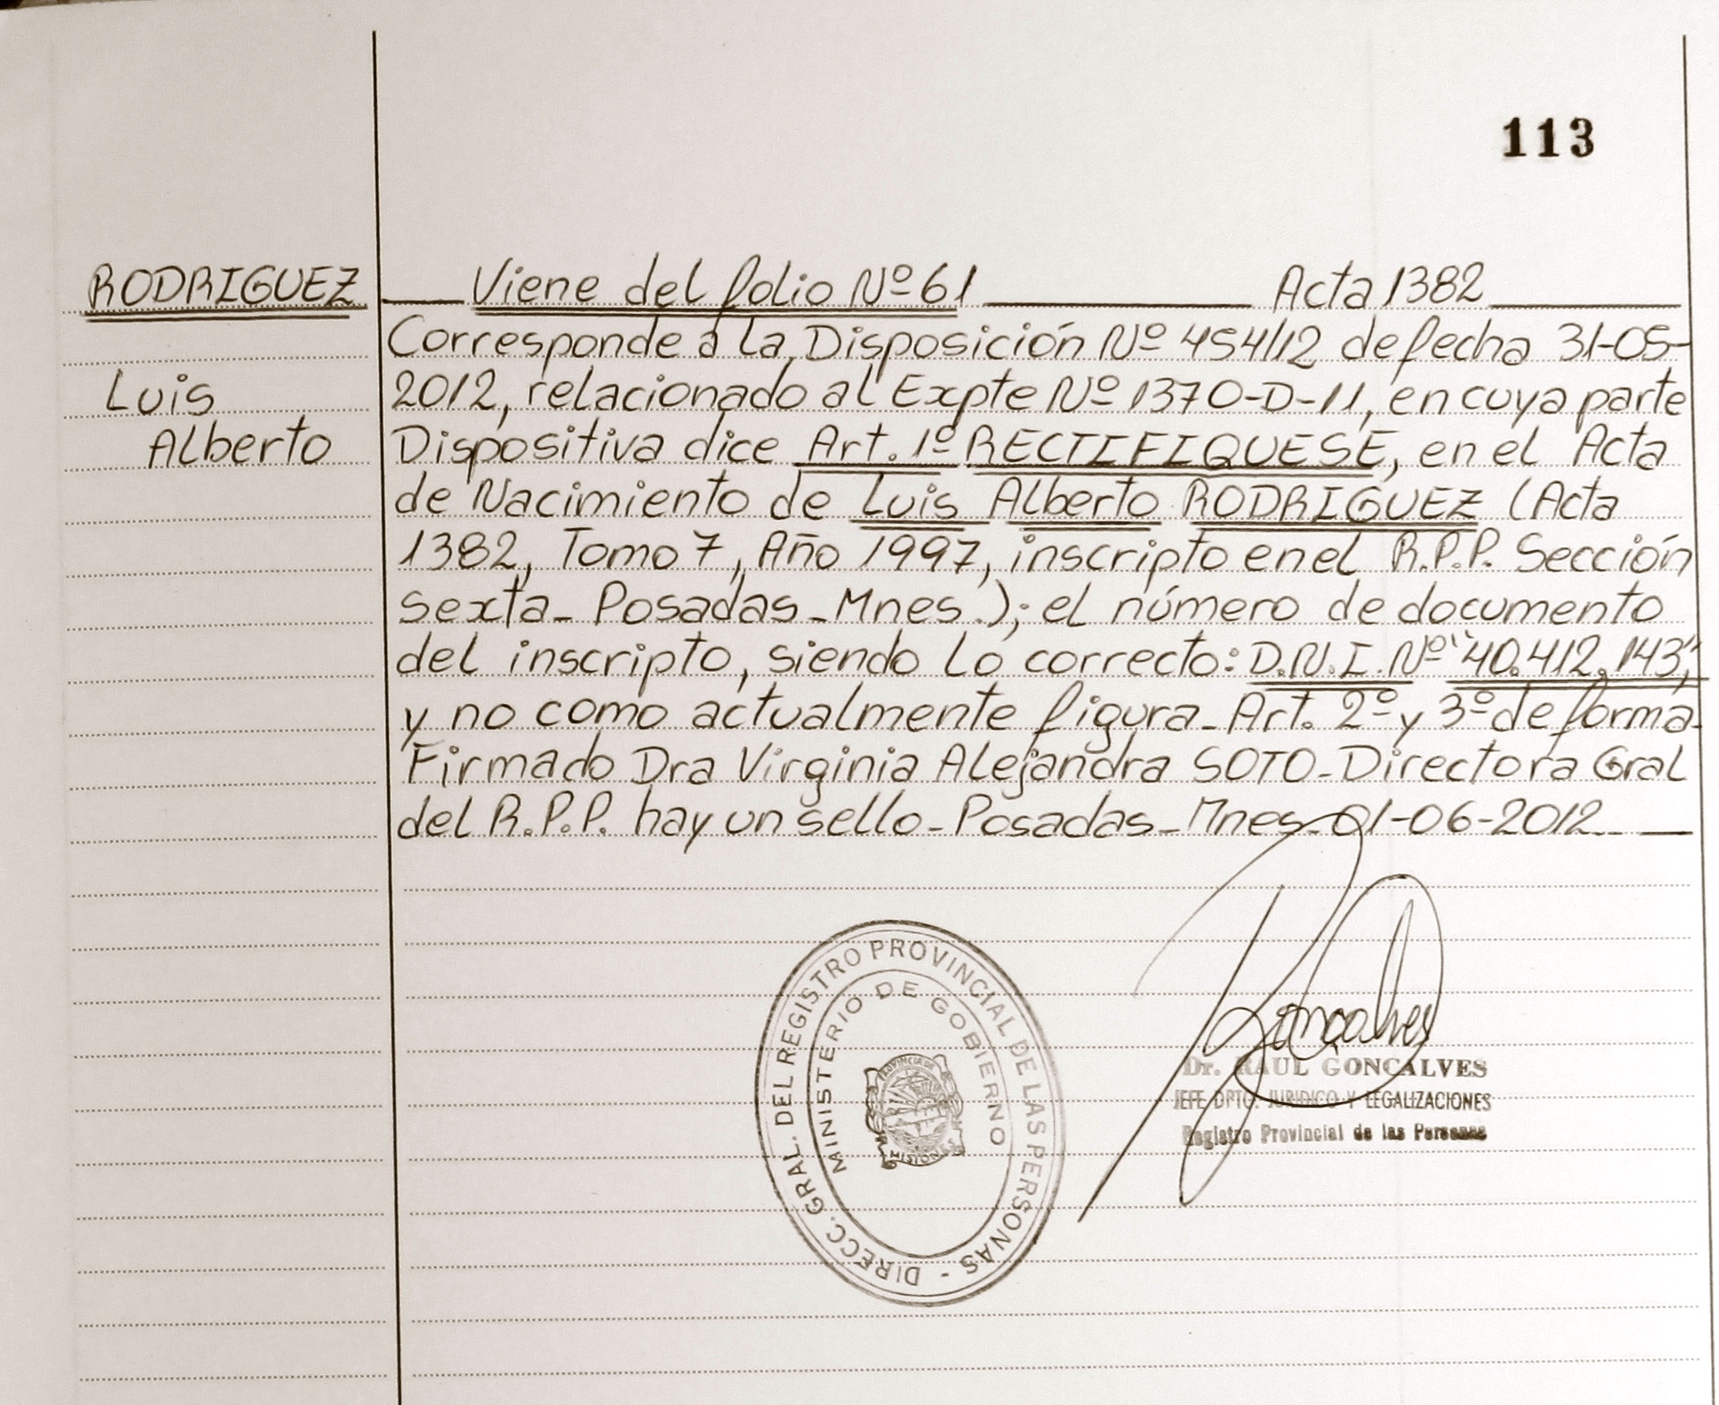 113
RODRIGUEZ
Luis
Alberto
Viene del folio Nº 61 Acta 1382
Corresponde a la Disposición Nº 454/12 de fecha 31-05-
2012, relacionado al Expte Nº 1370-D-11, en cuya parte
Dispositiva dice Art. 1º RECTIFIQUESE, en el Acta
de Nacimiento de Luis Alberto RODRIGUEZ (Acta
1382, Tomo 7, Año 1997, inscripto en el R.P.P. Sección
sexta- Posadas-Mnes.); el número de documento
del inscripto, siendo lo correcto: D.N.I. Nº "40.412.143",
y no como actualmente figura- Art. 2º y 3º de forma-
Firmado Dra Virginia Alejandra SOTO-Directora Gral
del R.P.P. hay un sello-Posadas-Mnes-01-06-2012.
DIRECC. GRAL. DEL REGISTRO PROVINCIAL DE LAS PERSONAS -
MINISTERIO DE GOBIERNO
PROVINCIA DE
MISIONES
Goncalves
Dr. RAUL GONCALVES
JEFE DPTO. JURIDICO Y LEGALIZACIONES
Registro Provincial de las Personas